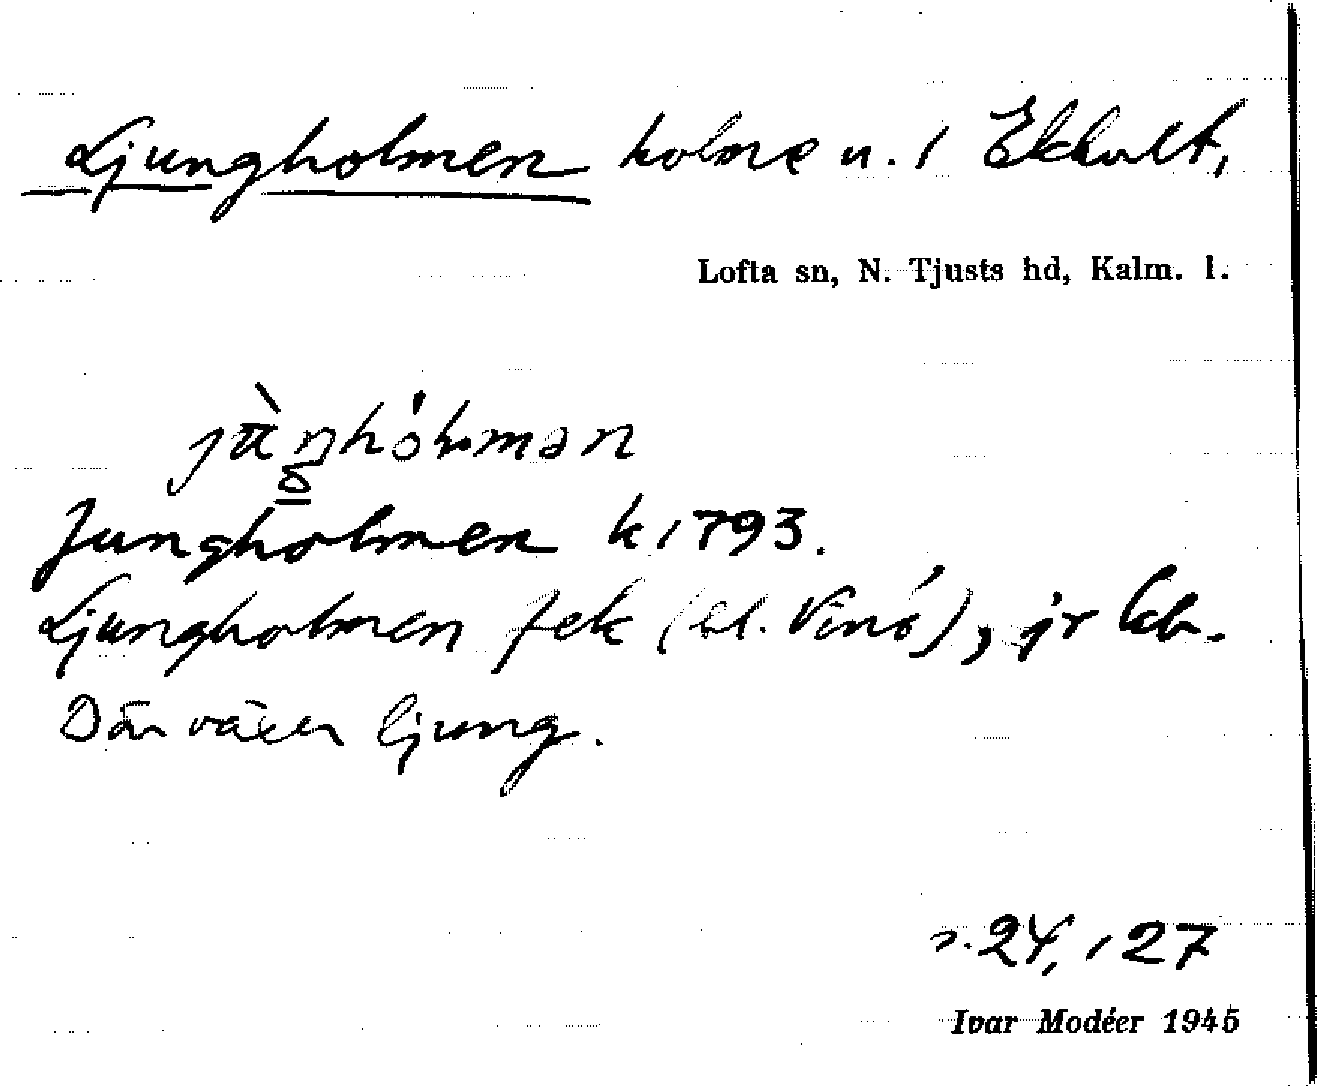 Ljungholmen holme u. 1 Ekhult,
Lofta sn, N. Tjusts hd, Kalm. l.
Jungholmen k 1793.
Ljungholmen jek (bl. Vinö), jr kb.
Där växer ljung.
s. 24, 127
Ivar Modéer 1945